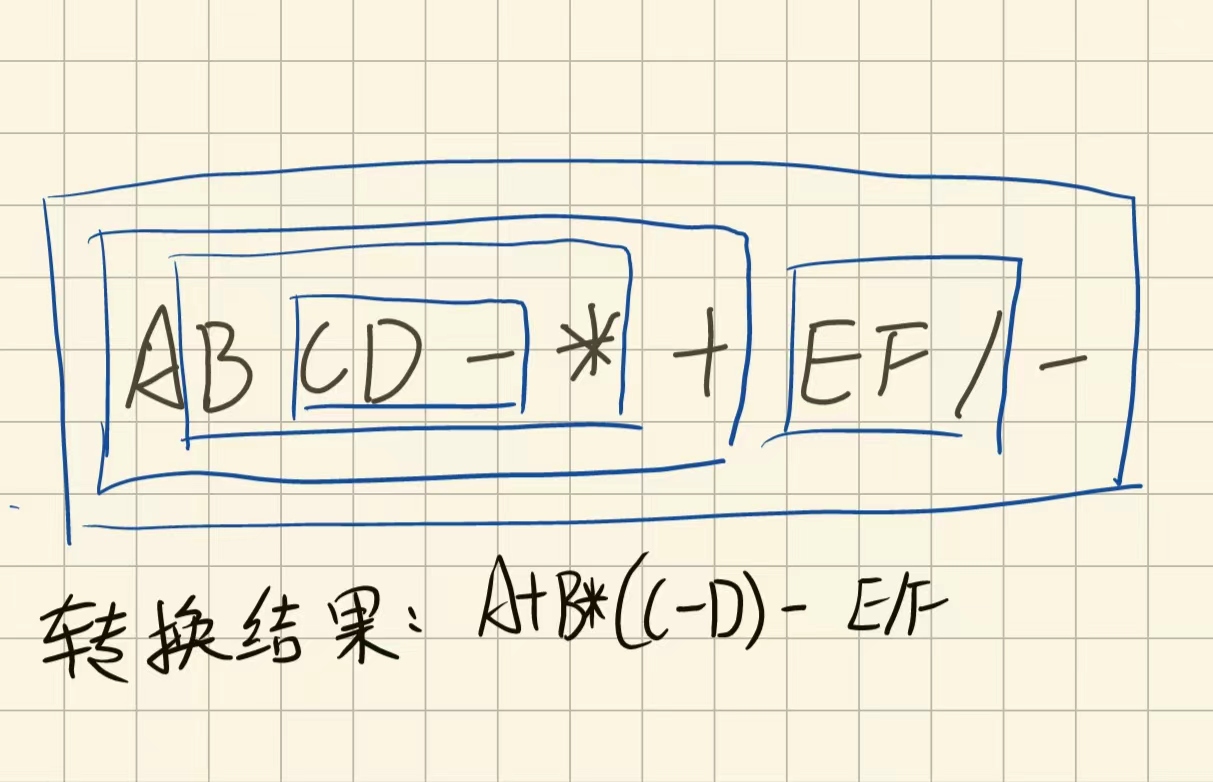 ABCD-*+EF/-
转换结果: A+B*(C-D)-E/F